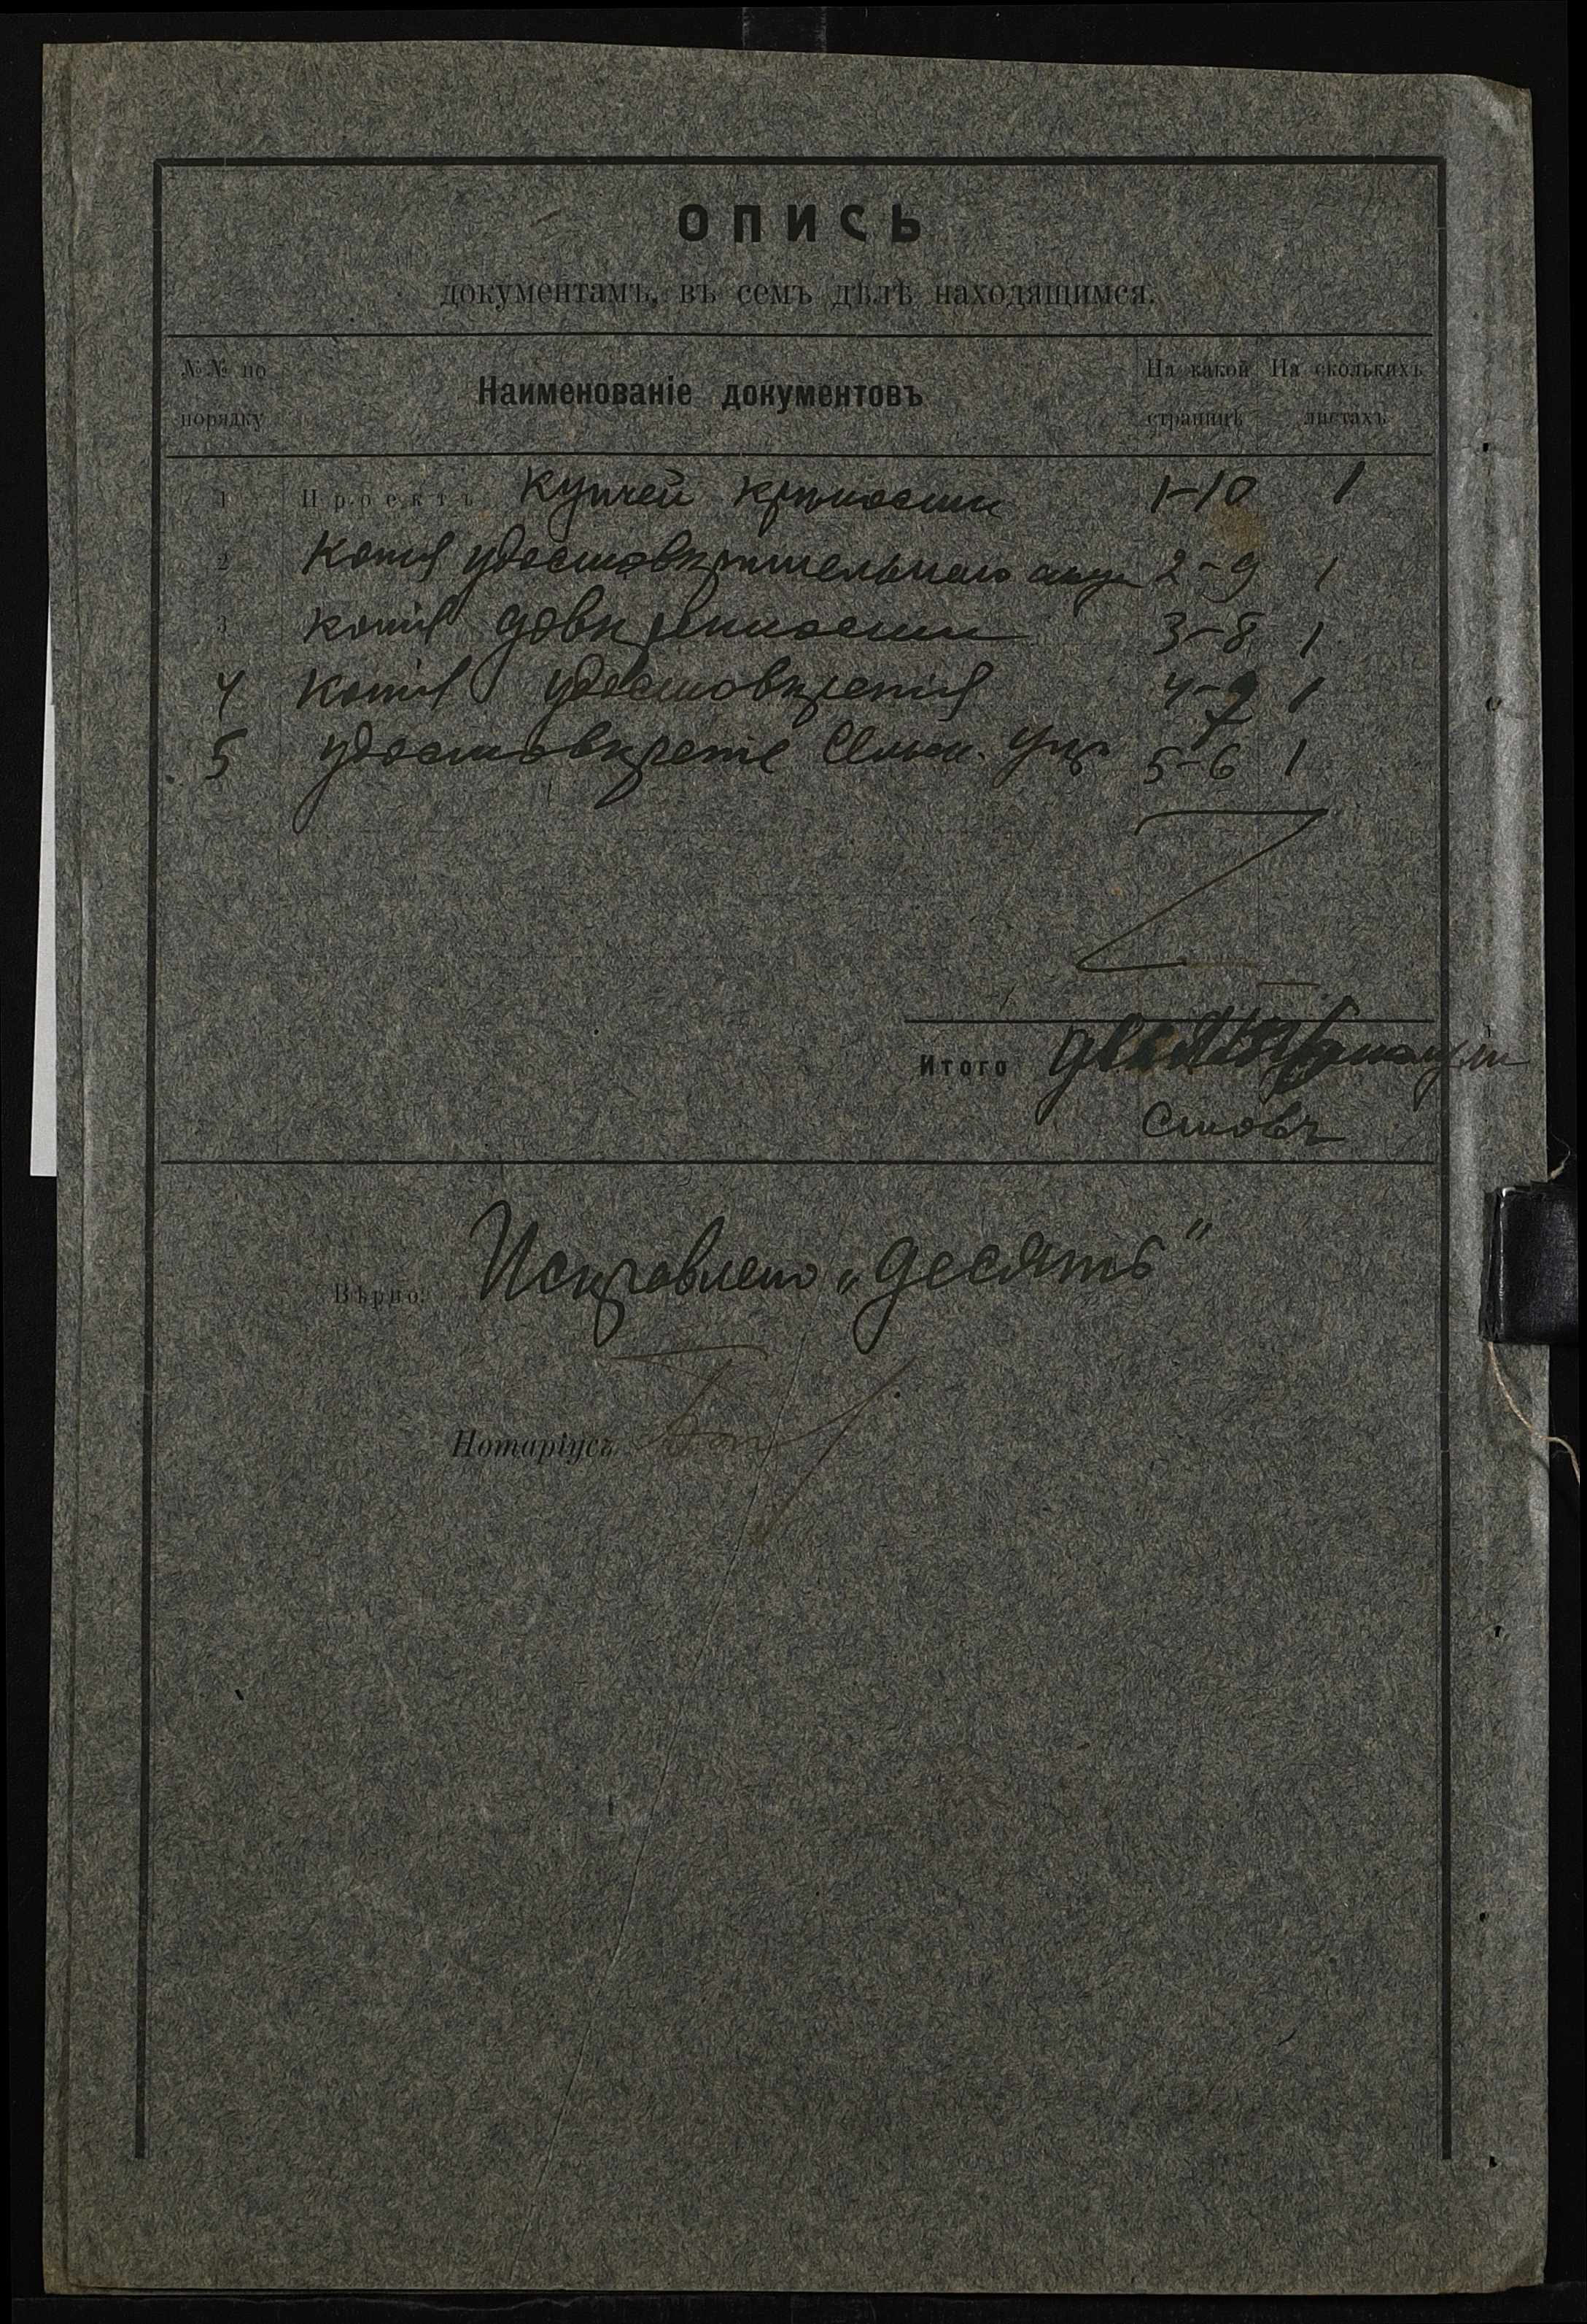 ОПИСЬ
документамъ, въ семъ дѣлѣ находящимся.
№№ по порядку
Наименованіе документовъ
На какой страницѣ
На сколькихъ листахъ
1 Проектъ купчей крѣпости 1-10 1
2 Копія удостовѣрительнаго 2-9 1
3 копія довѣренности 3-8 1
4 копія удостовѣренія 4-7 1
5 удостовѣреніе 5-6 1
Итого десять
стовъ
Вѣрно: Исправлено „десять"
Нотаріусъ